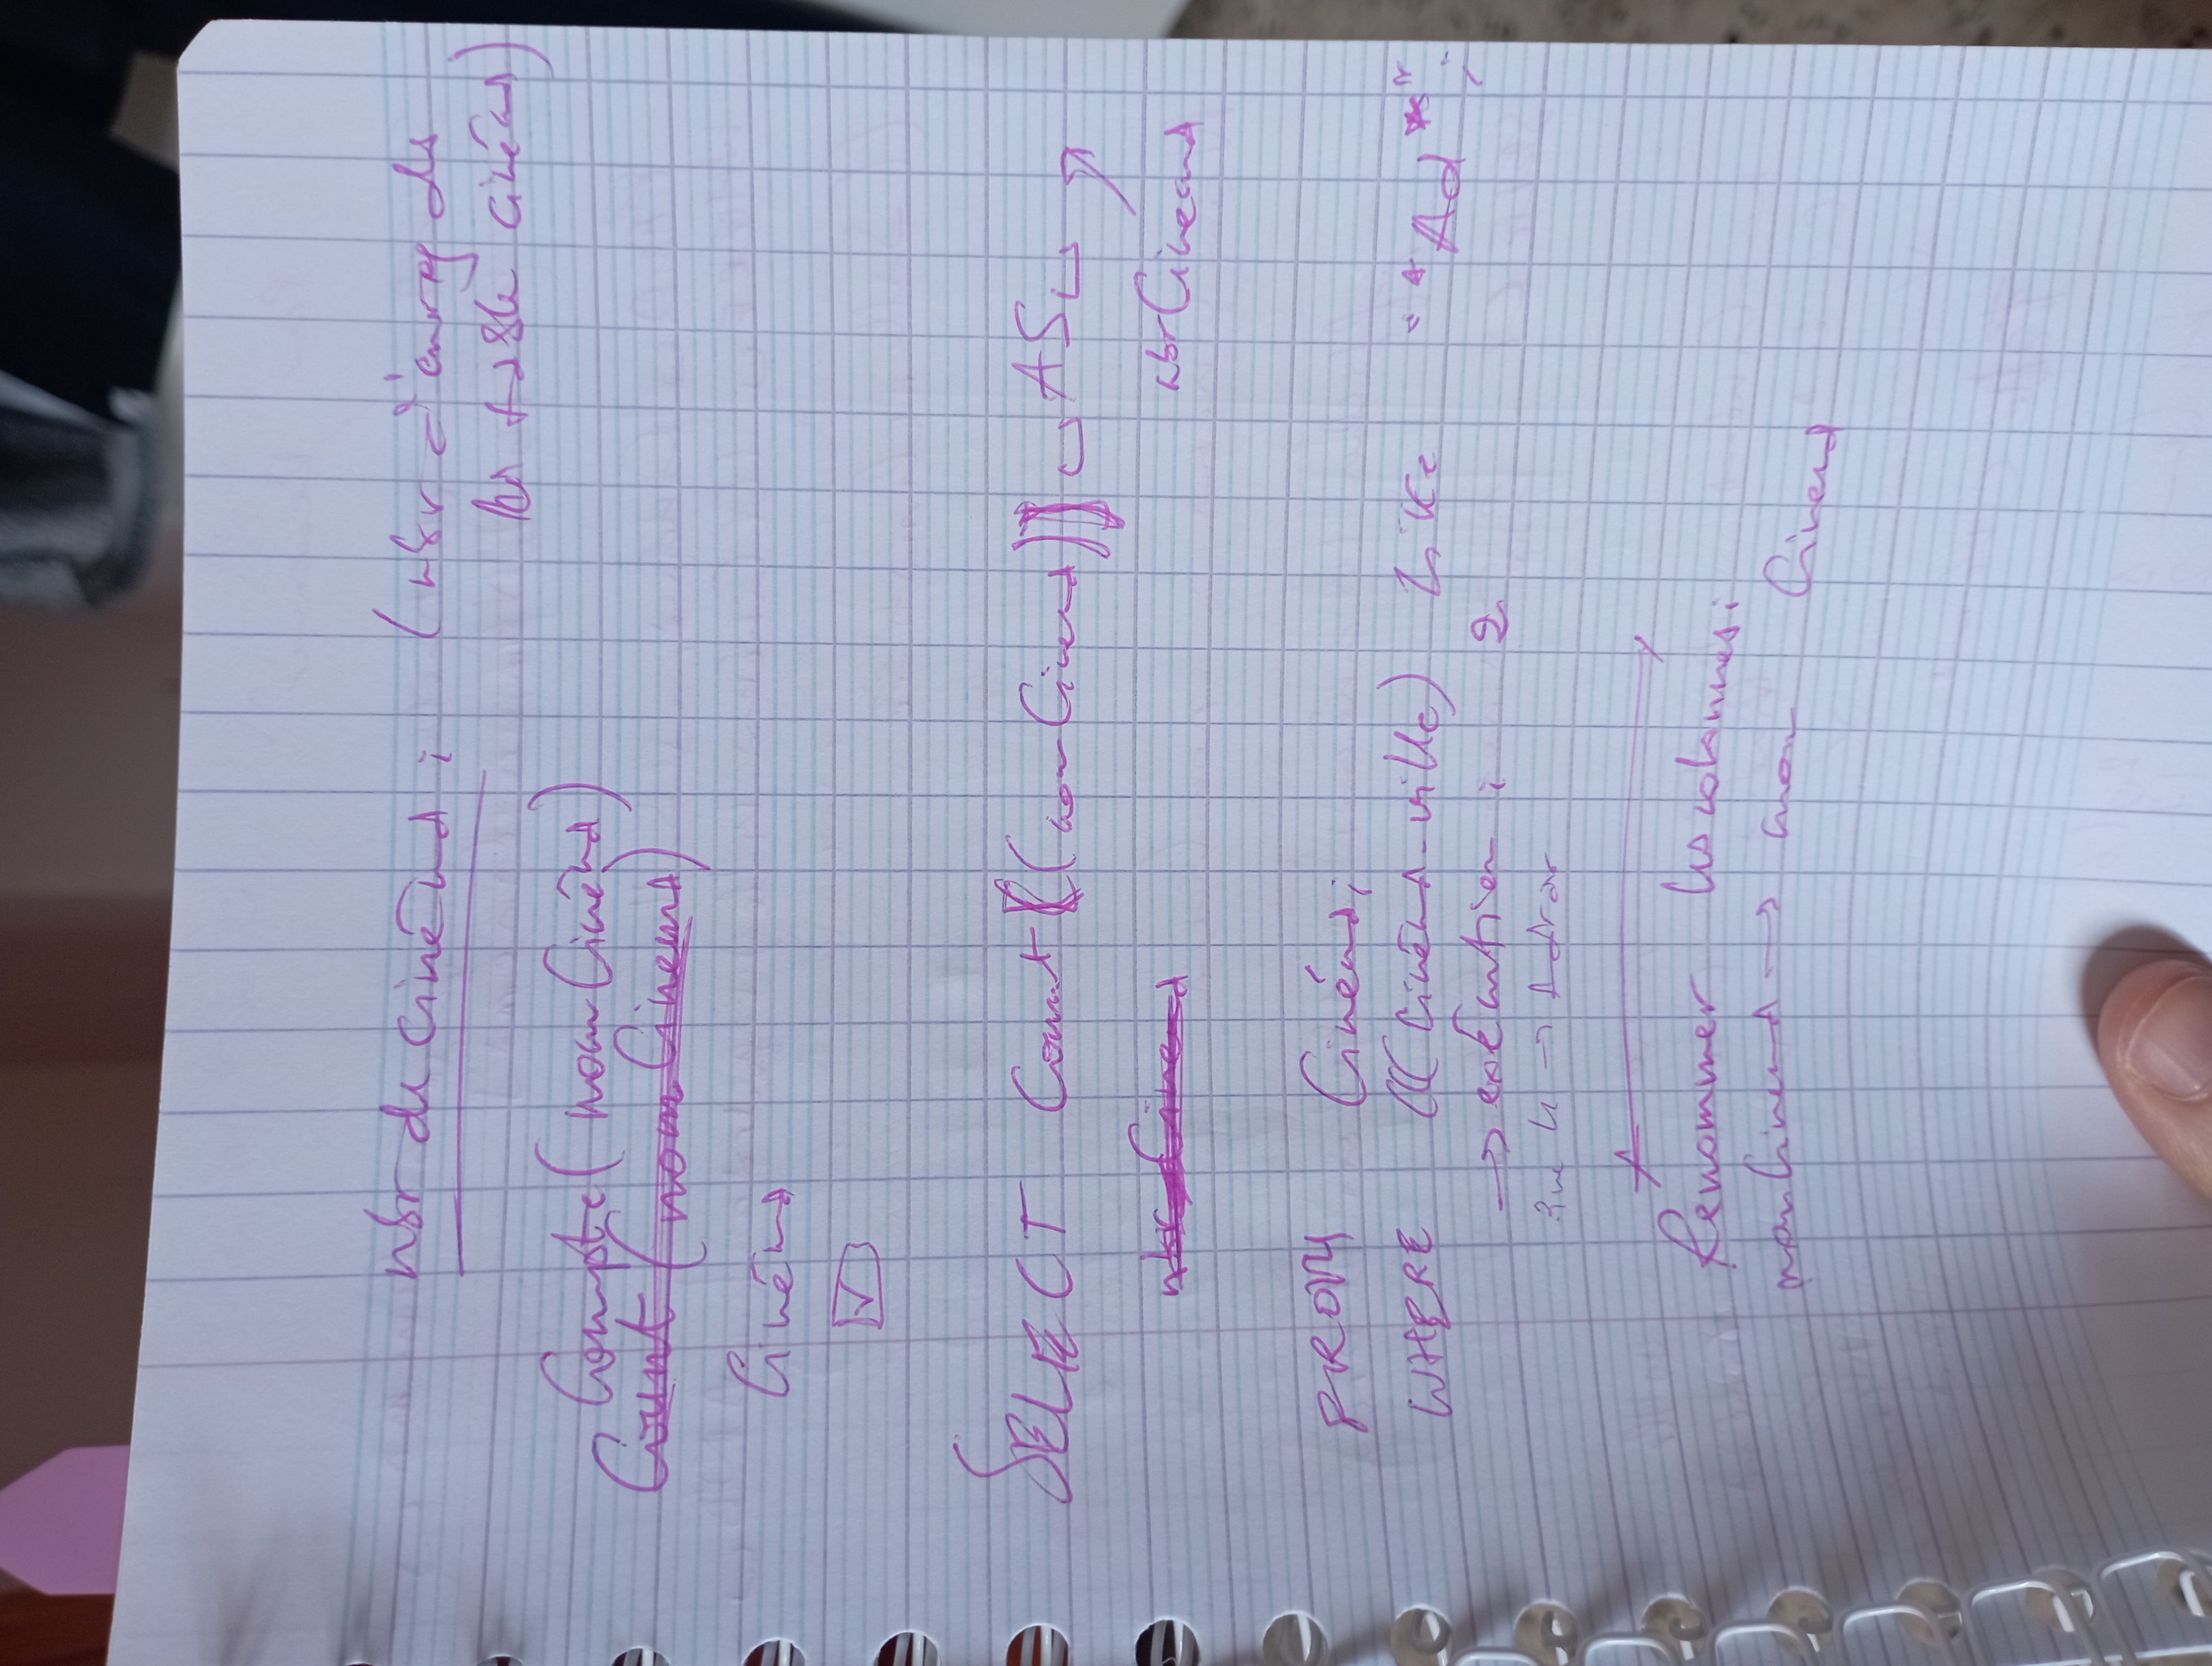 nbr de Cinéma : (nbr d'enreg ds
la table cinéma)
Compte(nomCinéma)
Count(nomCinema)
Cinéma
SELECT Count((nomCinema)) AS
nbr Cinema nbrCinema
FROM Cinéma;
WHERE (((Cinéma.ville) Like "*Ad*";
→ exécution : 2
→ Adrar
Renommer les colonnes :
nomCinema → nom Cinema